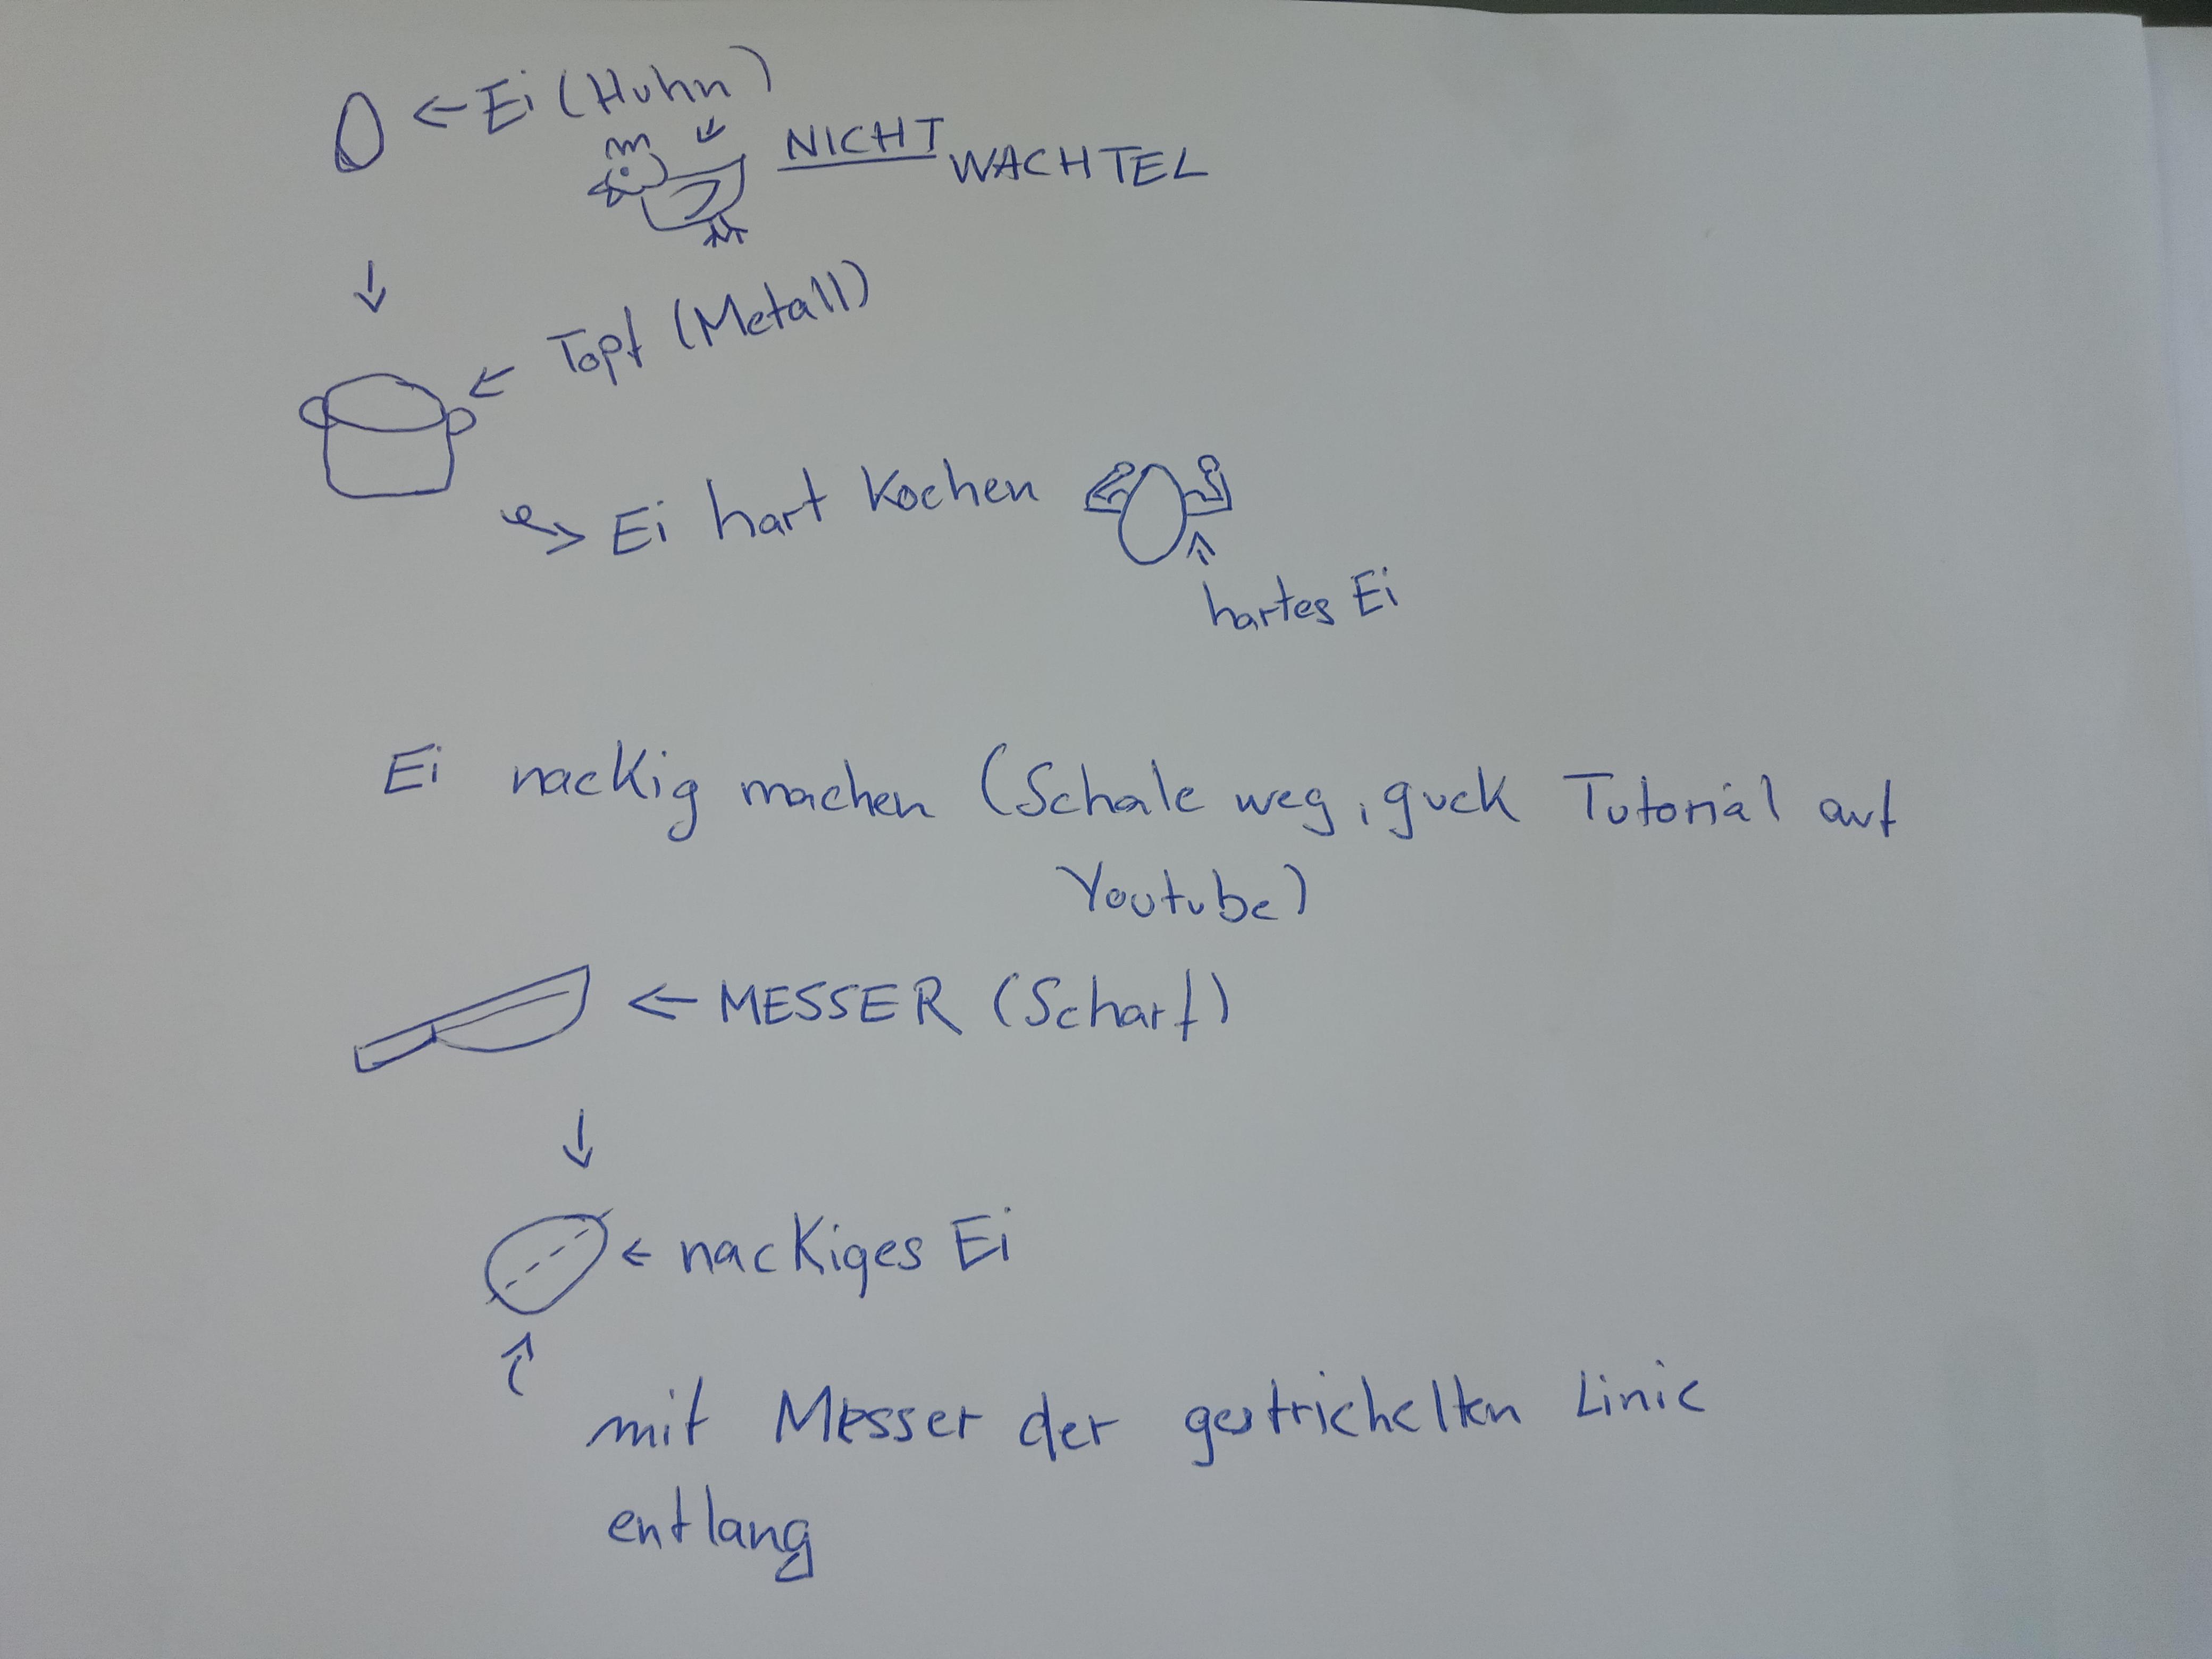 Ei (Huhn)
NICHT WACHTEL
Topf (Metall)
Ei hart kochen
hartes Ei
Ei nackig machen (Schale weg, guck Tutorial auf
Youtube)
MESSER (Scharf)
nackiges Ei
mit Messer der gestrichelten Linie
entlang